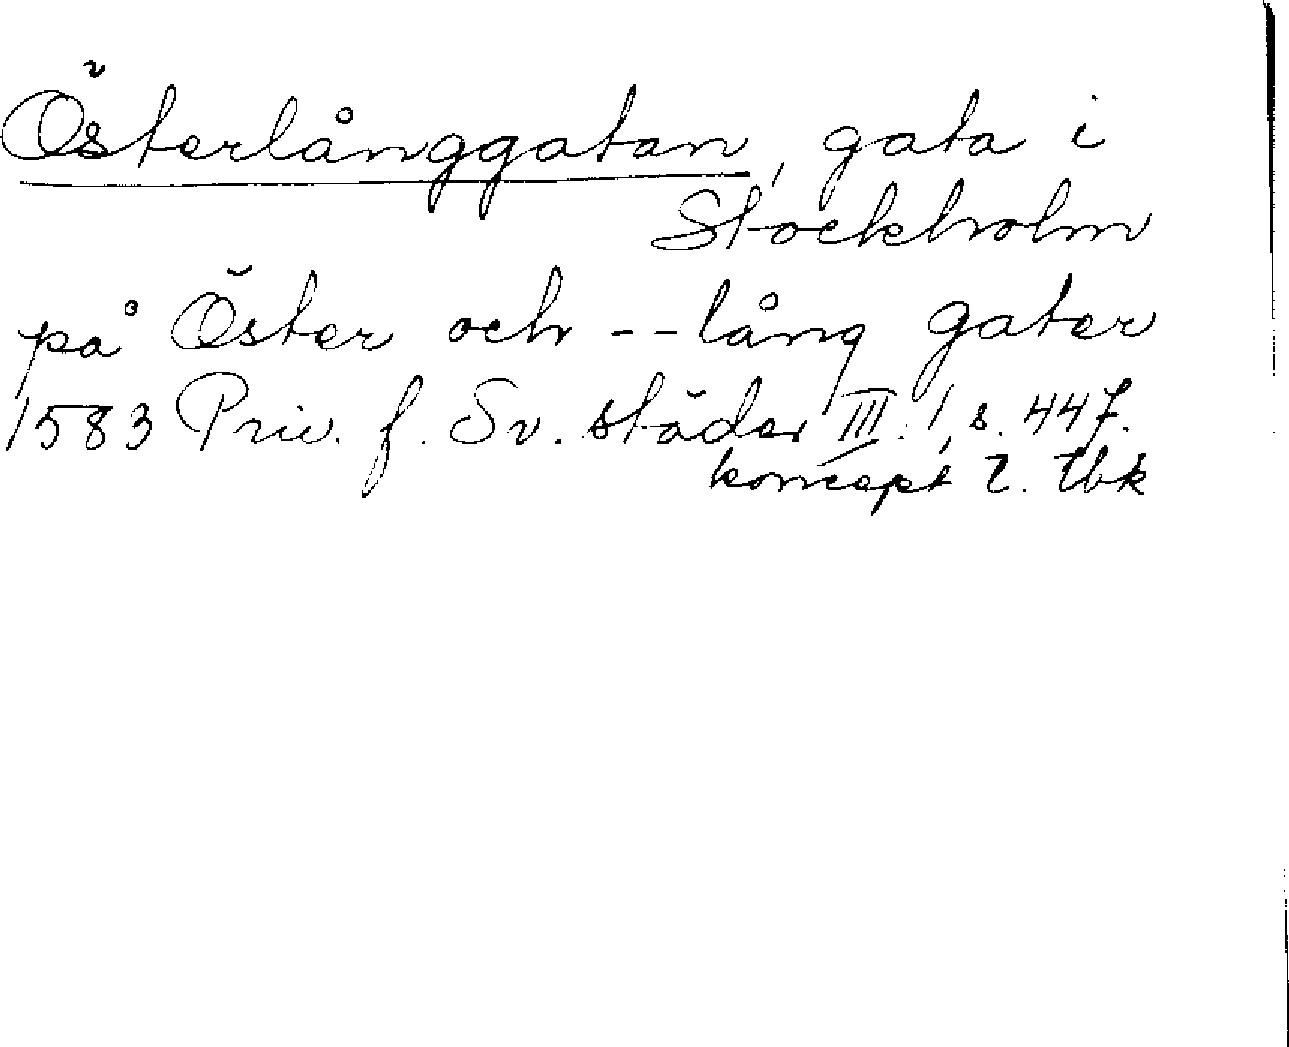 Österlånggatan, gata i
Stockholm
på Öster och -- lång gater
1583 Priv. f. Sv. städer III. 1, s. 447.
koncept t. tbk